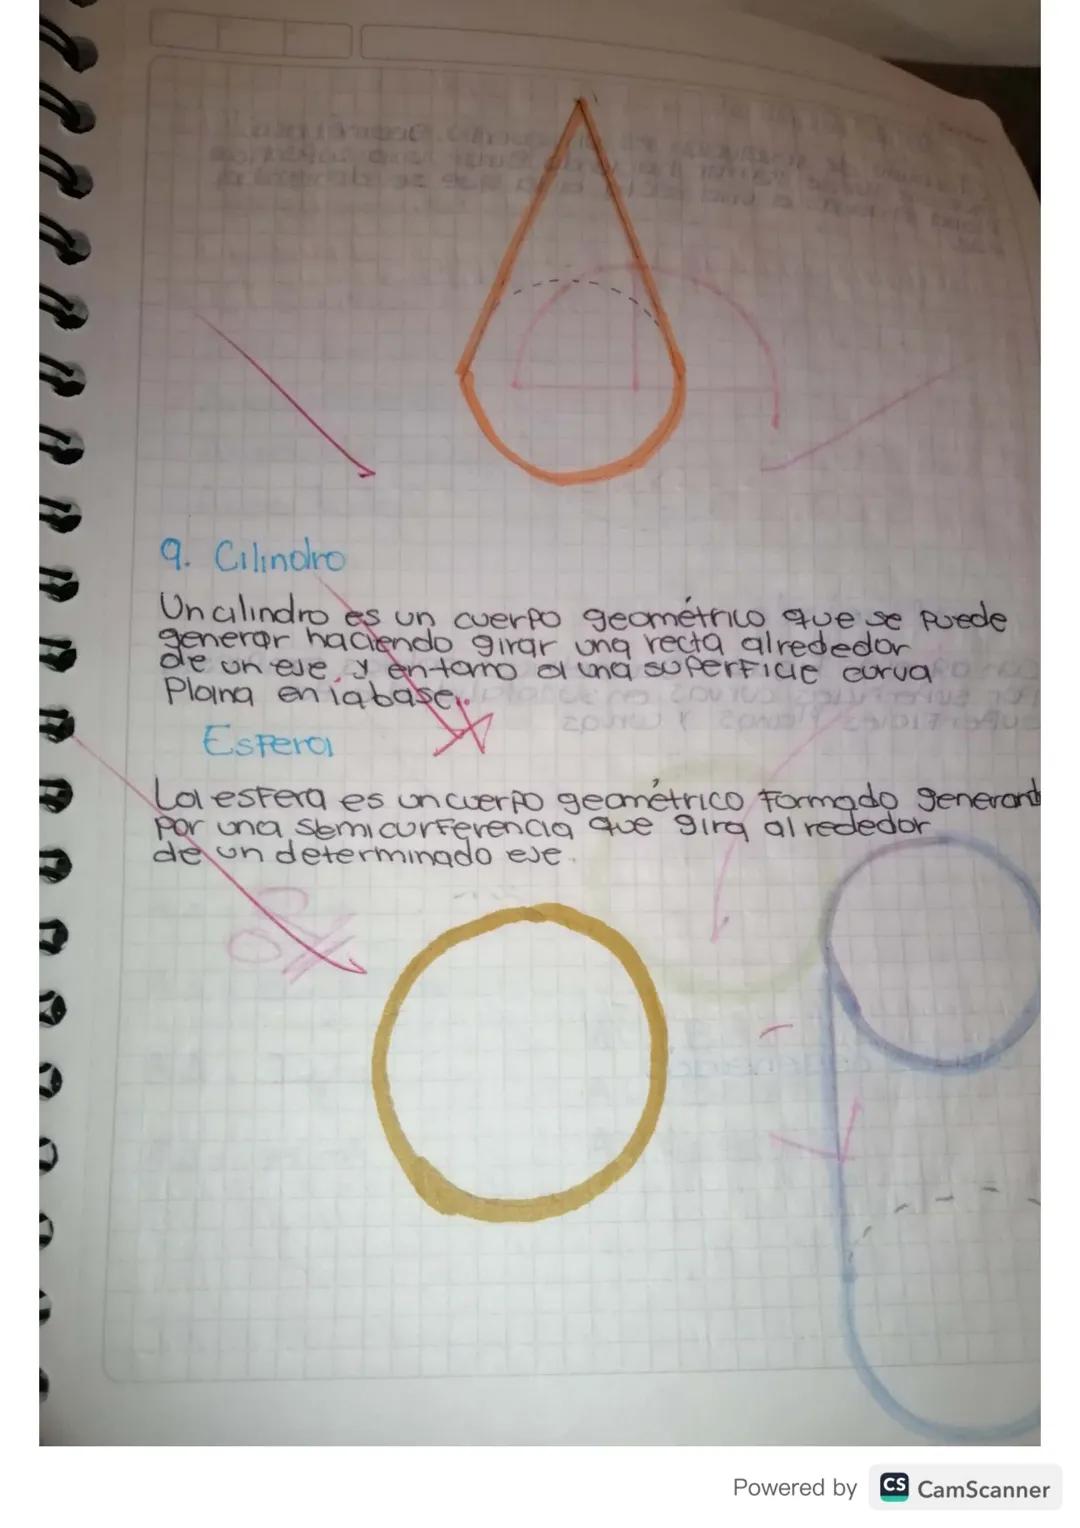 9. Cilindro
Un cilindro es un cuerpo geométrico que se puede
generar haciendo girar una recta alrededor
de un eje, y en torno a una superficie curva
Plana en la base.
Esfera
La esfera es un cuerpo geométrico formado generand
por una semicurferencia que gira alrededor
de un determinado eje.
Powered by CS CamScanner